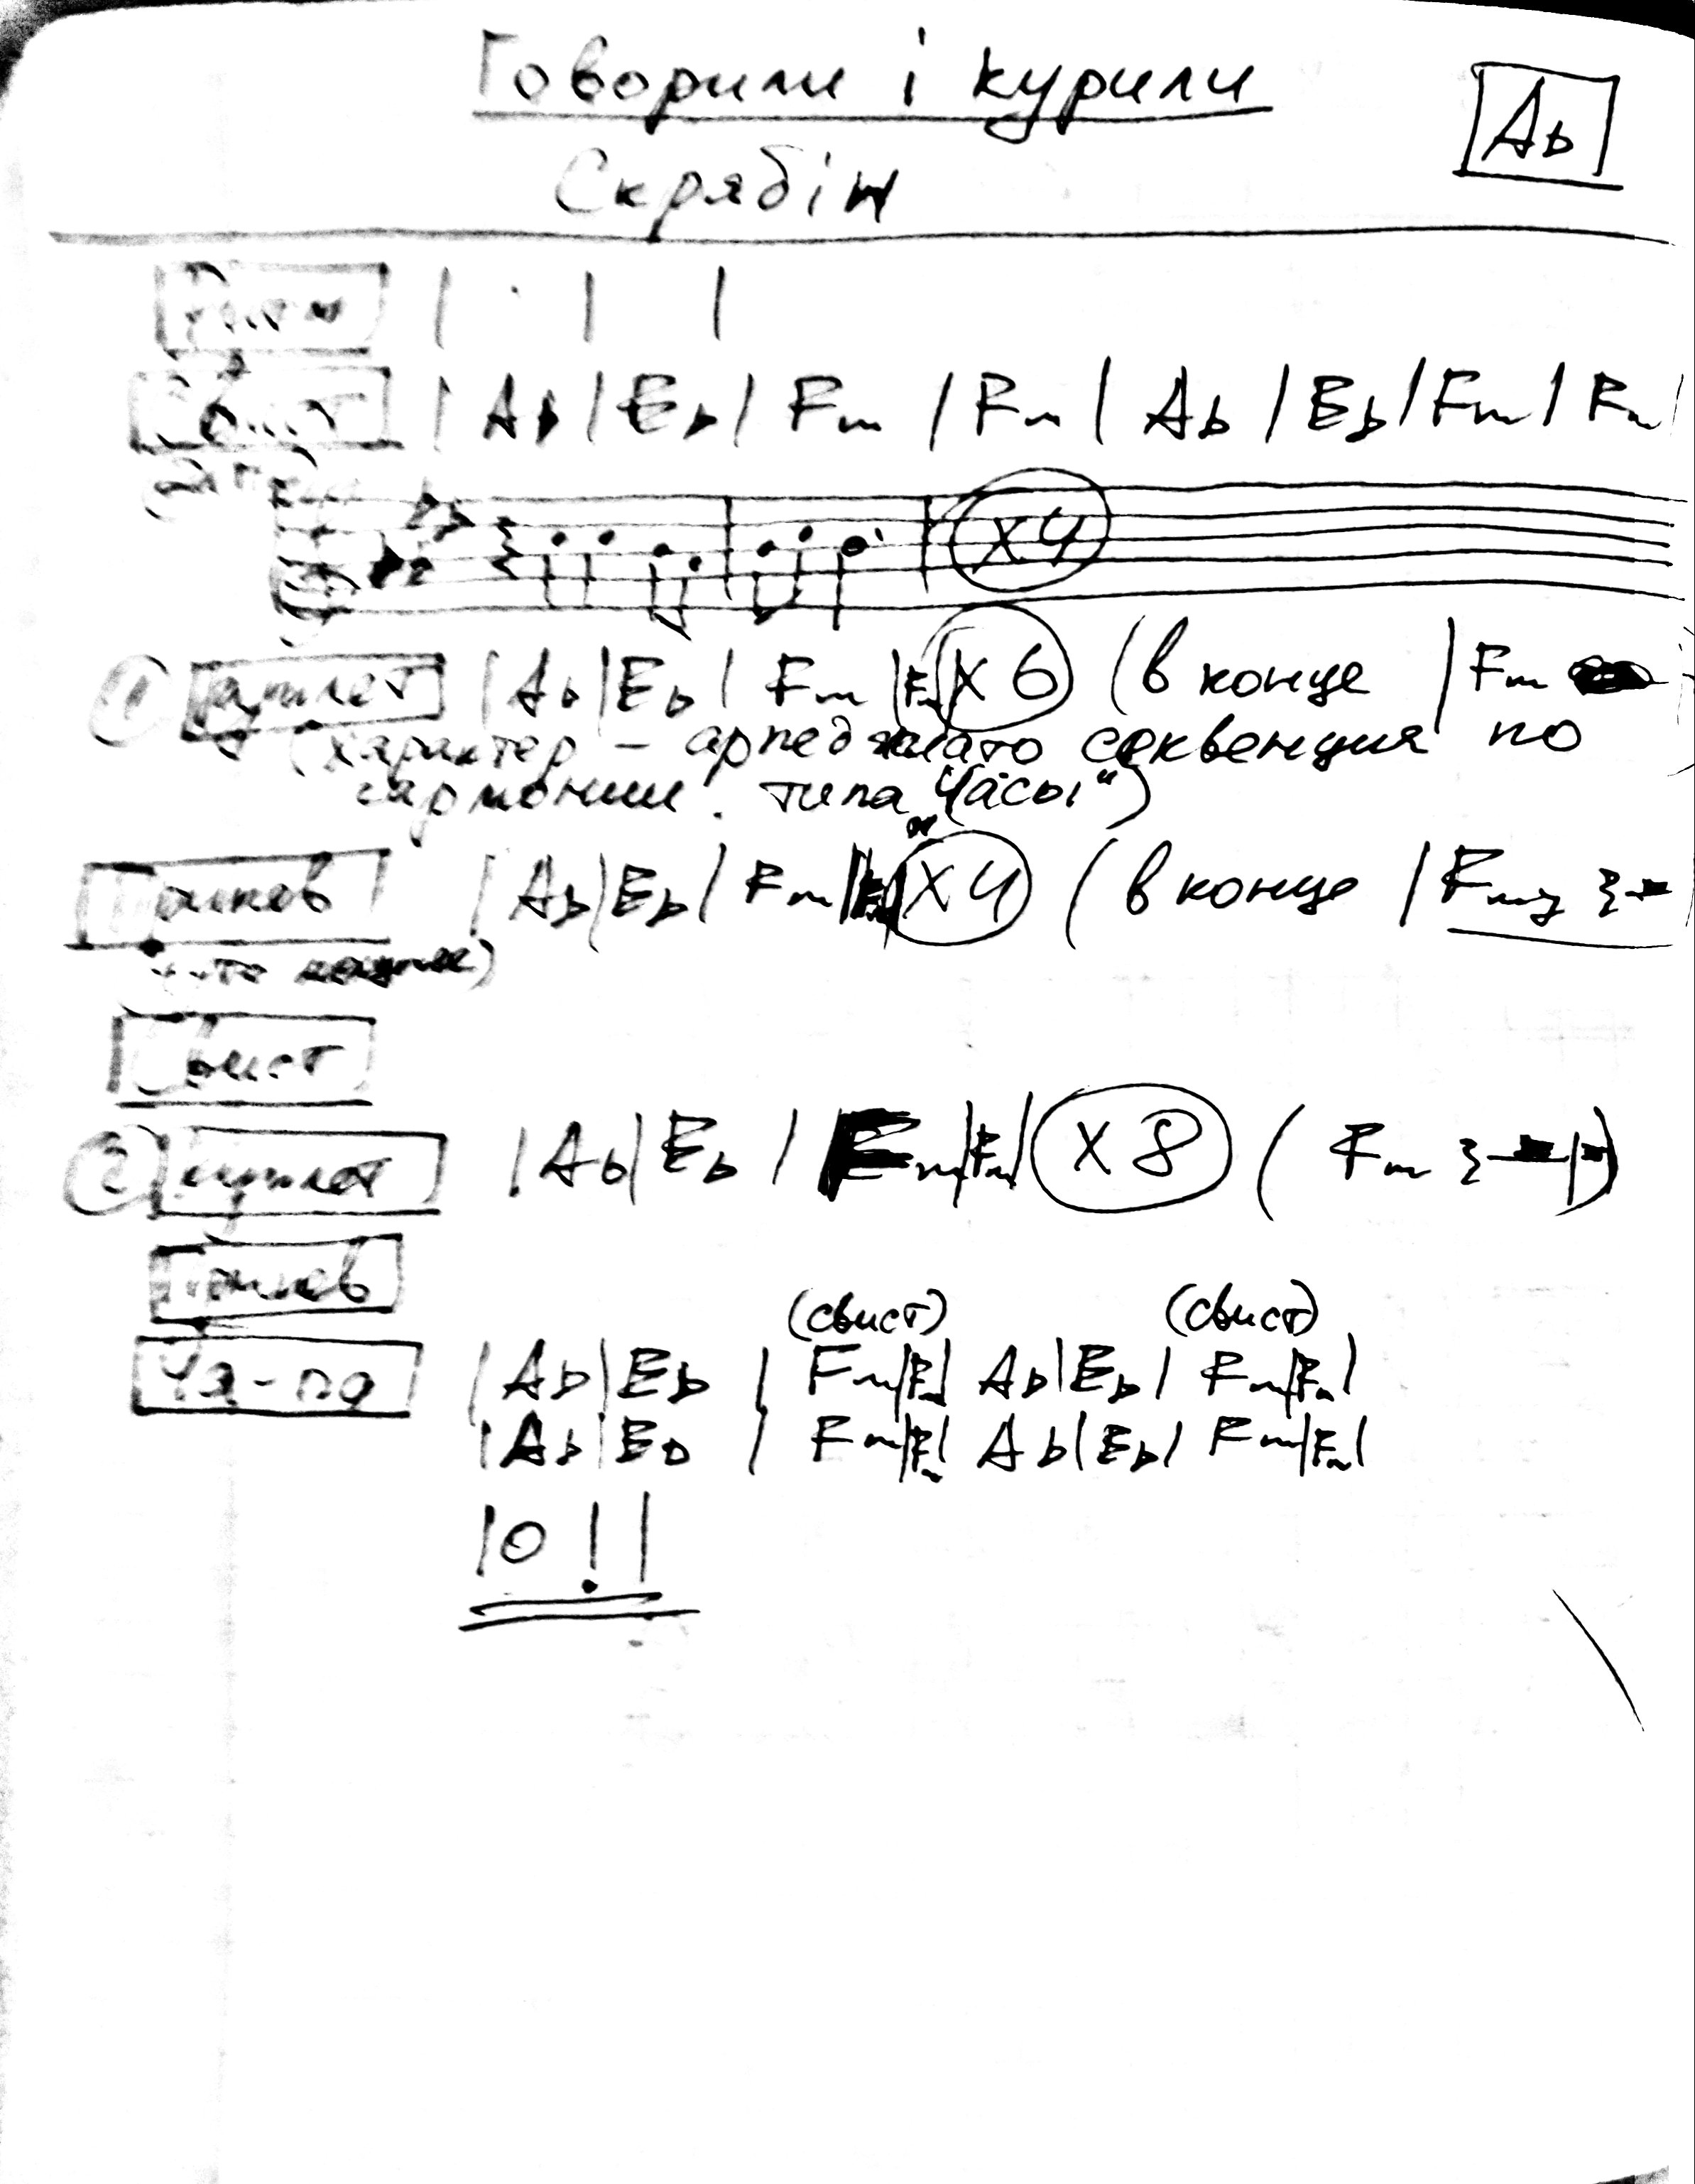 Говорили і курили
Ab
Скрябін
| | |
Свист | Ab | Eb | Fm | Fm | Ab | Eb | Fm | Fm |
X4
1 куплет | Ab | Eb | Fm | Fm X6 (в конце | Fm
(характер - арпеджиато секвенция по
гармонии. типа „Часы“)
Припев | Ab | Eb | Fm X4 (в конце | Fm
Свист
2 куплет | Ab | Eb | Fm | Fm | X8 ( Fm )
Припев
(свист) (свист)
| Ab | Eb | Fm | Fm | Ab | Eb | Fm | Fm |
| Ab | Eb | Fm | Fm | Ab | Eb | Fm | Fm |